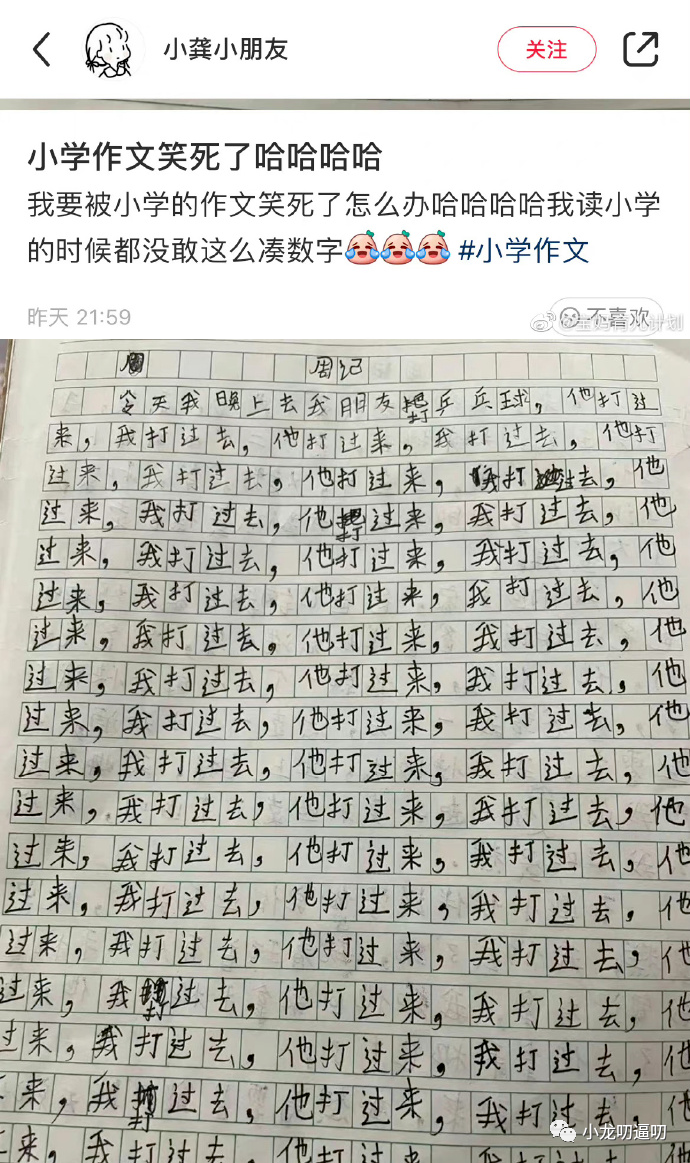 小龚小朋友
关注
小学作文笑死了哈哈哈哈
我要被小学的作文笑死了怎么办哈哈哈哈我读小学
的时候都没敢这么凑数字 #小学作文
昨天 21:59
不喜欢
周记
今天我晚上去我朋友打乒乓球，他打过
来，我打过去，他打过来，我打过去，他打
过来，我打过去，他打过来，我打过去，他
过来，我打过去，他打过来，我打过去，他
过来，我打过去，他打过来，我打过去，他
过来，我打过去，他打过来，我打过去，他
过来，我打过去，他打过来，我打过去，他
过来，我打过去，他打过来，我打过去，他
过来，我打过去，他打过来，我打过去，他
过来，我打过去，他打过来，我打过去，他
过来，我打过去，他打过来，我打过去，他
过来，我打过去，他打过来，我打过去，他
过来，我打过去，他打过来，我打过去，他
过来，我打过去，他打过来，我打过去，他
过来，我打过去，他打过来，我打过去，他
过来，我打过去，他打过来，我打过去，他
来，我打过去，他打过来，我打过去，他
来，我打过去，他打过来，我打过去，
小龙叨逼叨